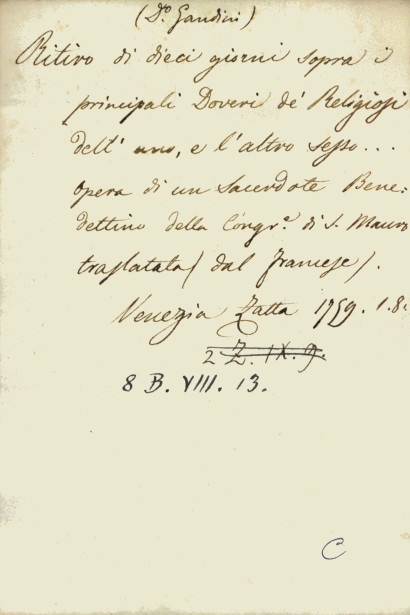 (D.º Gandini)
Ritiro di dieci giorni sopra i
principali Doveri de' Religiosi
dell' uno, e l'altro sesso...
opera di un Sacerdote Bene-
dettino della Congr.e di S. Mauro
traslatata (dal francese).
Venezia Zatta 1759. 1.8.
2 Z. IX. 9.
8 B. VIII. 13.
C